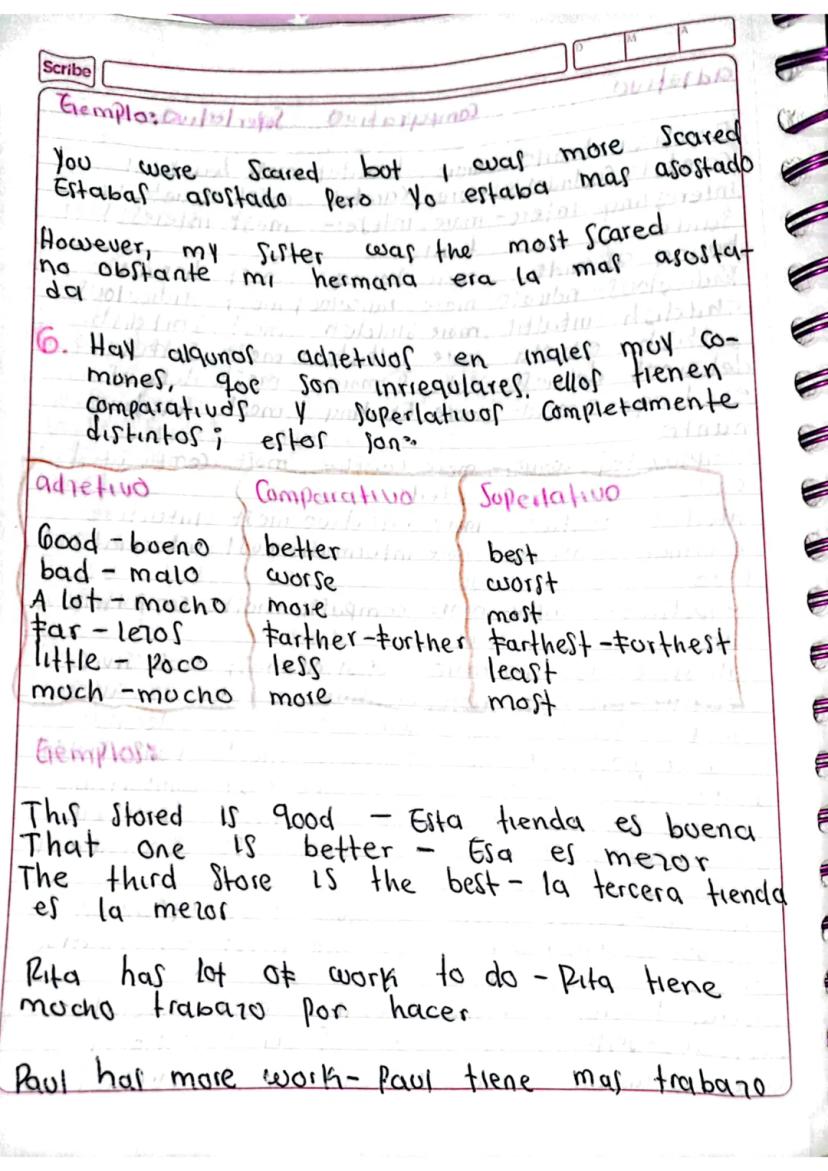 Scribe
D M A
Ejemplo:
You were Scared bot I was more Scared
Estabas asustado Pero Yo estaba mas asostado
However, my Sister was the most Scared
no obstante mi hermana era la mas asosta-
da
6. Hay algunos adjetivos en ingles muy co-
munes, que son inrregulares, ellos tienen
comparativos y superlativos completamente
distintos; estos son:
adjetivo Comparativo Superlativo
Good - bueno better best
bad - malo worse worst
A lot - mucho more most
far - lejos farther - further farthest - furthest
little - poco less least
much - mucho more most
Ejemplos:
This Stored is good - Esta tienda es buena
That one is better - Esa es mejor
The third Store is the best - la tercera tienda
es la mejor
Rita has lot of work to do - Rita tiene
mucho trabajo por hacer
Paul has more work - Paul tiene mas trabajo